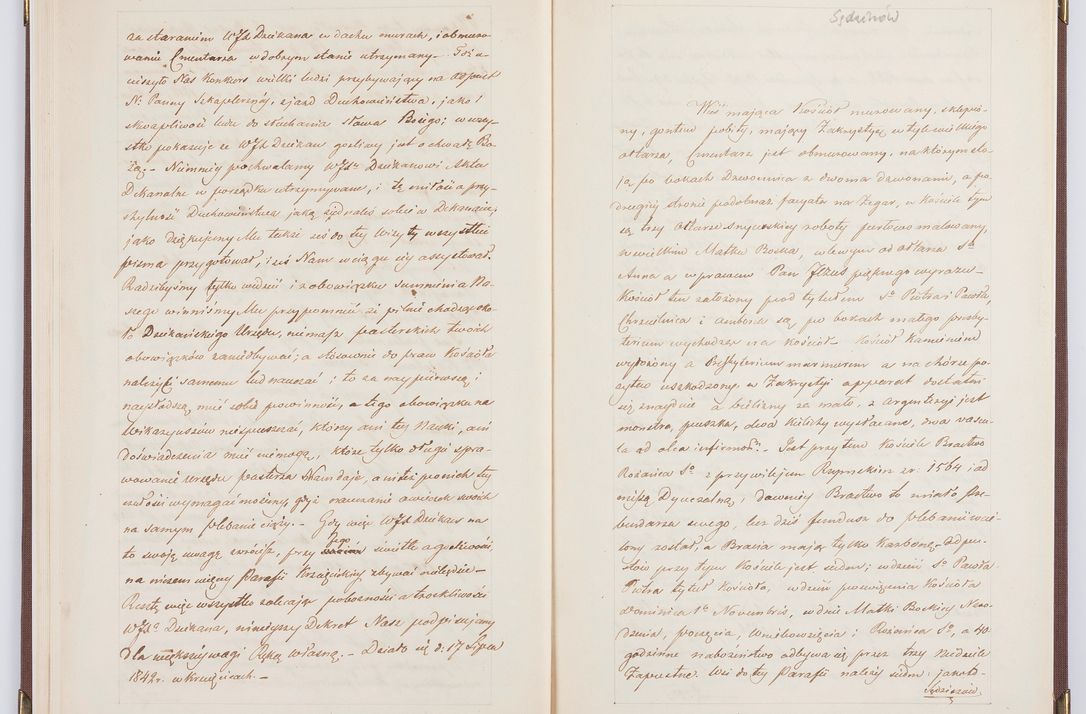 za staraniem WJX Dziekana w dachu murach, i obmuro-
wanie Cmentarza w dobrym stanie utrzymany – Toż u-
cieszyło Nas Konkurs wielki ludzi przybywający na odpust
N. Panny Szkaplerznéj, zjazd Duchowieństwa, jako i
skwapliwość ludu do słuchania słowa Bożego; w wszy-
stko pokazuje że WJX Dziekan gorliwy jest o chwałę Bo-
żą. – Niemniéj pochwalamy WJXa Dziekanowi Akta
Dekanalne w porządku utrzymywane, i tę miłość a przy-
chylność Duchowieństwa jaką zjednałeś sobie w Dekanacie,
jako dziękujemy Mu także żeś do téj wizyty wszystkie
pisma przygotował, i żeś Nam w ciągu jéj assystował.
Radzibyśmy tylko widzieć i z obowiązku Sumnienia Na-
szego winniśmy Mu przypomnieć że pilnie chodząc oko-
ło Dziekańskiego Urzędu, niemasz pasterskich twoich
obowiązków zaniedbywać; a stosownie do praw Kościoła
należysz samemu lud nauczać; to za naypierwszą i
naysłodszą mieć sobie powinność, a tego obowiązku na
Wikaryuszów niespuszczać, którzy ani téj Nauki, ani
doświadczenia mieć niemogą, które tylko długie spra-
wowanie urzędu pasterza Nam daje, a niżeli po nich téj
ścisłości wymagać możemy, gdyż nauczanie owieczek swoich
na samym plebanie ciąży. – Gdy więc WJX Dziekan na
to swoją uwagę zwróci, przy Jego świetle a gorliwości,
na niczem więcéj Parafii Krzęcickiéj zbywać nie będzie –
Resztę więc wszystko zalecając pobożności a troskliwości
WJXa Dziekana, niniejszy Dekret Nasz podpisujemy
dla większéj wagi Ręką własną. – Działo się d. 17 Lipca
1842 r. w Krzęcicach. –
Sędziszów
Wieś mająca Kościół murowany, sklepio-
ny, gontem pobity, mający Zakrystyą w tyle wielkiego
ołtarza, Cmentarz jest obmurowany, na którym sto-
ją po bokach Dzwonnica z dwoma dzwonami, a po
drugiéj stronie podobnaż facyata na Zegar, w Kościele tym
są trzy ołtarze snycerskiéj roboty perłowo malowany,
w wielkim Matka Boska, w lewym od ołtarza Sta
Anna a w prawem Pan JEzus pięknego wyrazu –
Kościół ten założony pod tytułem SS. Piotra i Pawła,
Chrzcielnica i ambona są po bokach małego prezby-
terium wychodząc na Kościół. Kościół Kamieniem
wyłożony a Presbyterium marmurem a na chórze po-
zytyw uszkodzony, w Zakrystyi apparat dostatni
się znajduie a bielizny za mało, z argenteryi jest
monstra, puszka, dwa kielichy wyzłacane, dwa vascu-
la ad olea infirmorum. – Jest przy tem Kościele Bractwo
Różańca So z przywilejem Rzymskim z r. 1564 i ad
missą Dyecezalną, dawniéj Bractwo to miało Pre-
bendarza swego, lecz dziś fundusz do plebanii wcie-
lony został, a Bracia mają tylko Karbonę. Odpu-
stów przy tym Kościele jest siedem; w dzień So Pawła
Piotra tytuł Kościoła, w dzień poswięcenia Kościoła
dominica 1a Novembris, w dnie Matki Boskiéj Naro-
dzenia, poczęcia, wniebowzięcia i Różańca So, a 40.
godzinne nabożeństwo odbywa się przez trzy Niedziele
Zapustne. Wsi do téj Parafii należy siedm; jakoto –
Sędziszów,